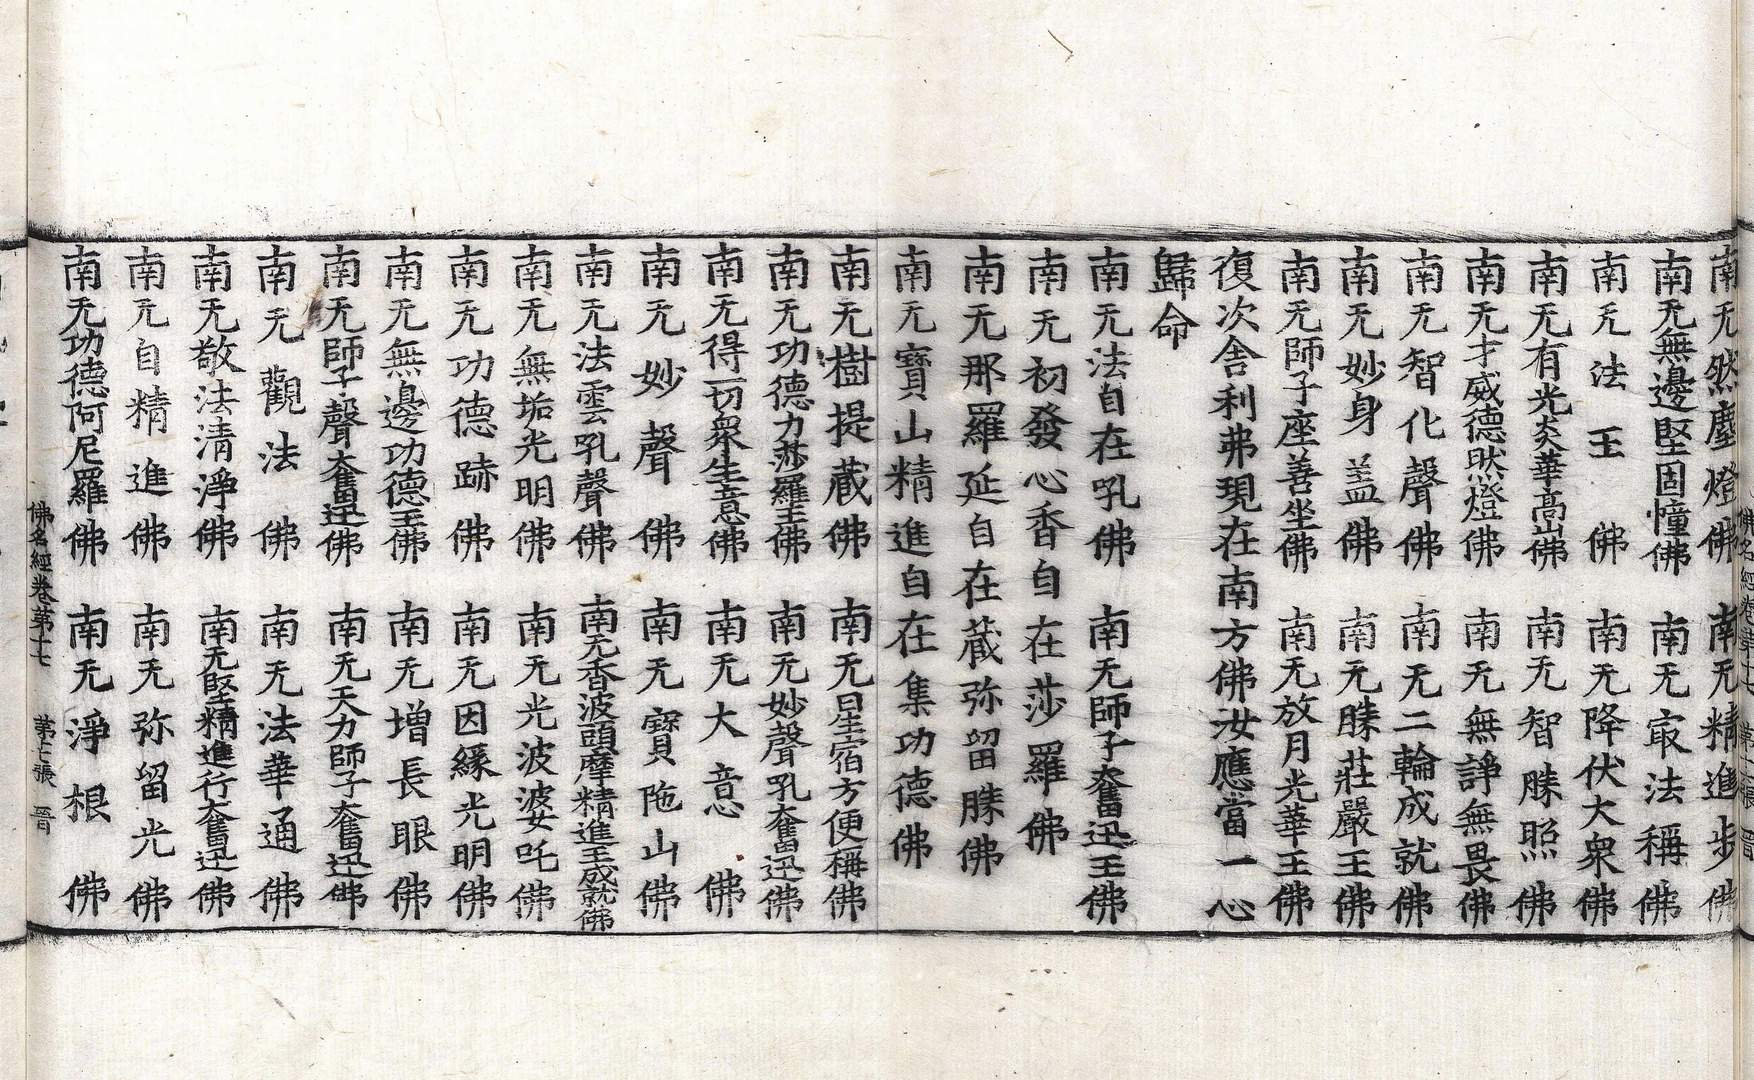 南无然塵燈佛　南无精進步佛
南无無邊堅固幢佛　南无㝡法稱佛
南无法王佛　南无降伏大衆佛
南无有光炎華高山佛　南无智勝照佛
南无才威德然燈佛　南无無諍無畏佛
南无智化聲佛　南无二輪成就佛
南无妙身盖佛　南无勝莊嚴王佛
南无師子座善坐佛　南无放月光華王佛
復次舍利弗現在南方佛汝應當一心
歸命
南无法自在吼佛　南无師子奮迅王佛
南无初發心香自在莎羅佛
南无那羅延自在藏弥留勝佛
南无寶山精進自在集功德佛
南无樹提藏佛　南无星宿方便稱佛
南无功德力莎羅王佛　南无妙聲吼奮迅佛
南无得一切衆生意佛　南无大意佛
南无妙聲佛　南无寶陁山佛
南无法雲吼聲佛　南无香波頭摩精進王成就佛
南无無垢光明佛　南无光波婆吒佛
南无功德跡佛　南无因緣光明佛
南无無邊功德王佛　南无增長眼佛
南无師子聲奮迅佛　南无天力師子奮迅佛
南无觀法佛　南无法華通佛
南无敬法清淨佛　南无堅精進行奮迅佛
南无自精進佛　南无弥留光佛
南无功德阿尼羅佛　南无淨根佛
佛名經卷第十七　第十七張　晋